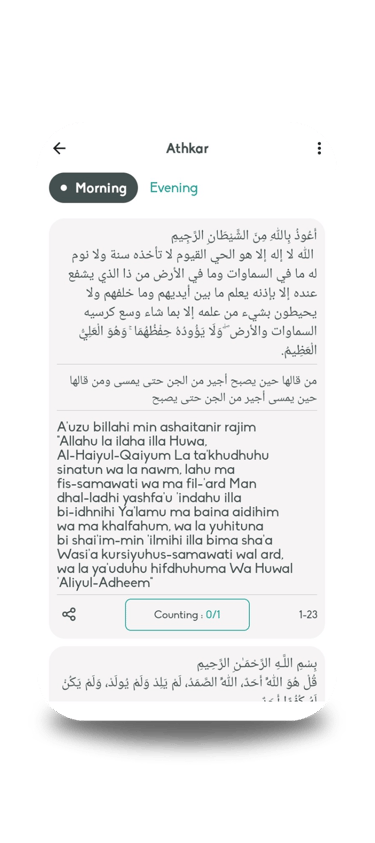 Athkar
Morning
Evening
أعُوذُ بِاللهِ مِنَ الشَّيْطَانِ الرَّجِيمِ
الله لا إله إلا هو الحي القيوم لا تأخذه سنة ولا نوم
له ما في السماوات وما في الأرض من ذا الذي يشفع
عنده إلا بإذنه يعلم ما بين أيديهم وما خلفهم ولا
يحيطون بشيء من علمه إلا بما شاء وسع كرسيه
السماوات والأرض ۖ وَلَا يَؤُودُهُ حِفْظُهُمَا ۚ وَهُوَ الْعَلِيُّ
الْعَظِيمُ.
من قالها حين يصبح أجير من الجن حتى يمسى ومن قالها
حين يمسى أجير من الجن حتى يصبح
A'uzu billahi min ashaitanir rajim
"Allahu la ilaha illa Huwa,
Al-Haiyul-Qaiyum La ta'khudhuhu
sinatun wa la nawm, lahu ma
fis-samawati wa ma fil-'ard Man
dhal-ladhi yashfa'u 'indahu illa
bi-idhnihi Ya'lamu ma baina aidihim
wa ma khalfahum, wa la yuhituna
bi shai'im-min 'ilmihi illa bima sha'a
Wasi'a kursiyuhus-samawati wal ard,
wa la ya'uduhu hifdhuhuma Wa Huwal
'Aliyul-Adheem"
Counting : 0/1
1-23
بِسْمِ اللَّهِ الرَّحْمَنِ الرَّحِيمِ
قُلْ هُوَ اللَّهُ أَحَدٌ، اللَّهُ الصَّمَدُ، لَمْ يَلِدْ وَلَمْ يُولَدْ، وَلَمْ يَكُنْ